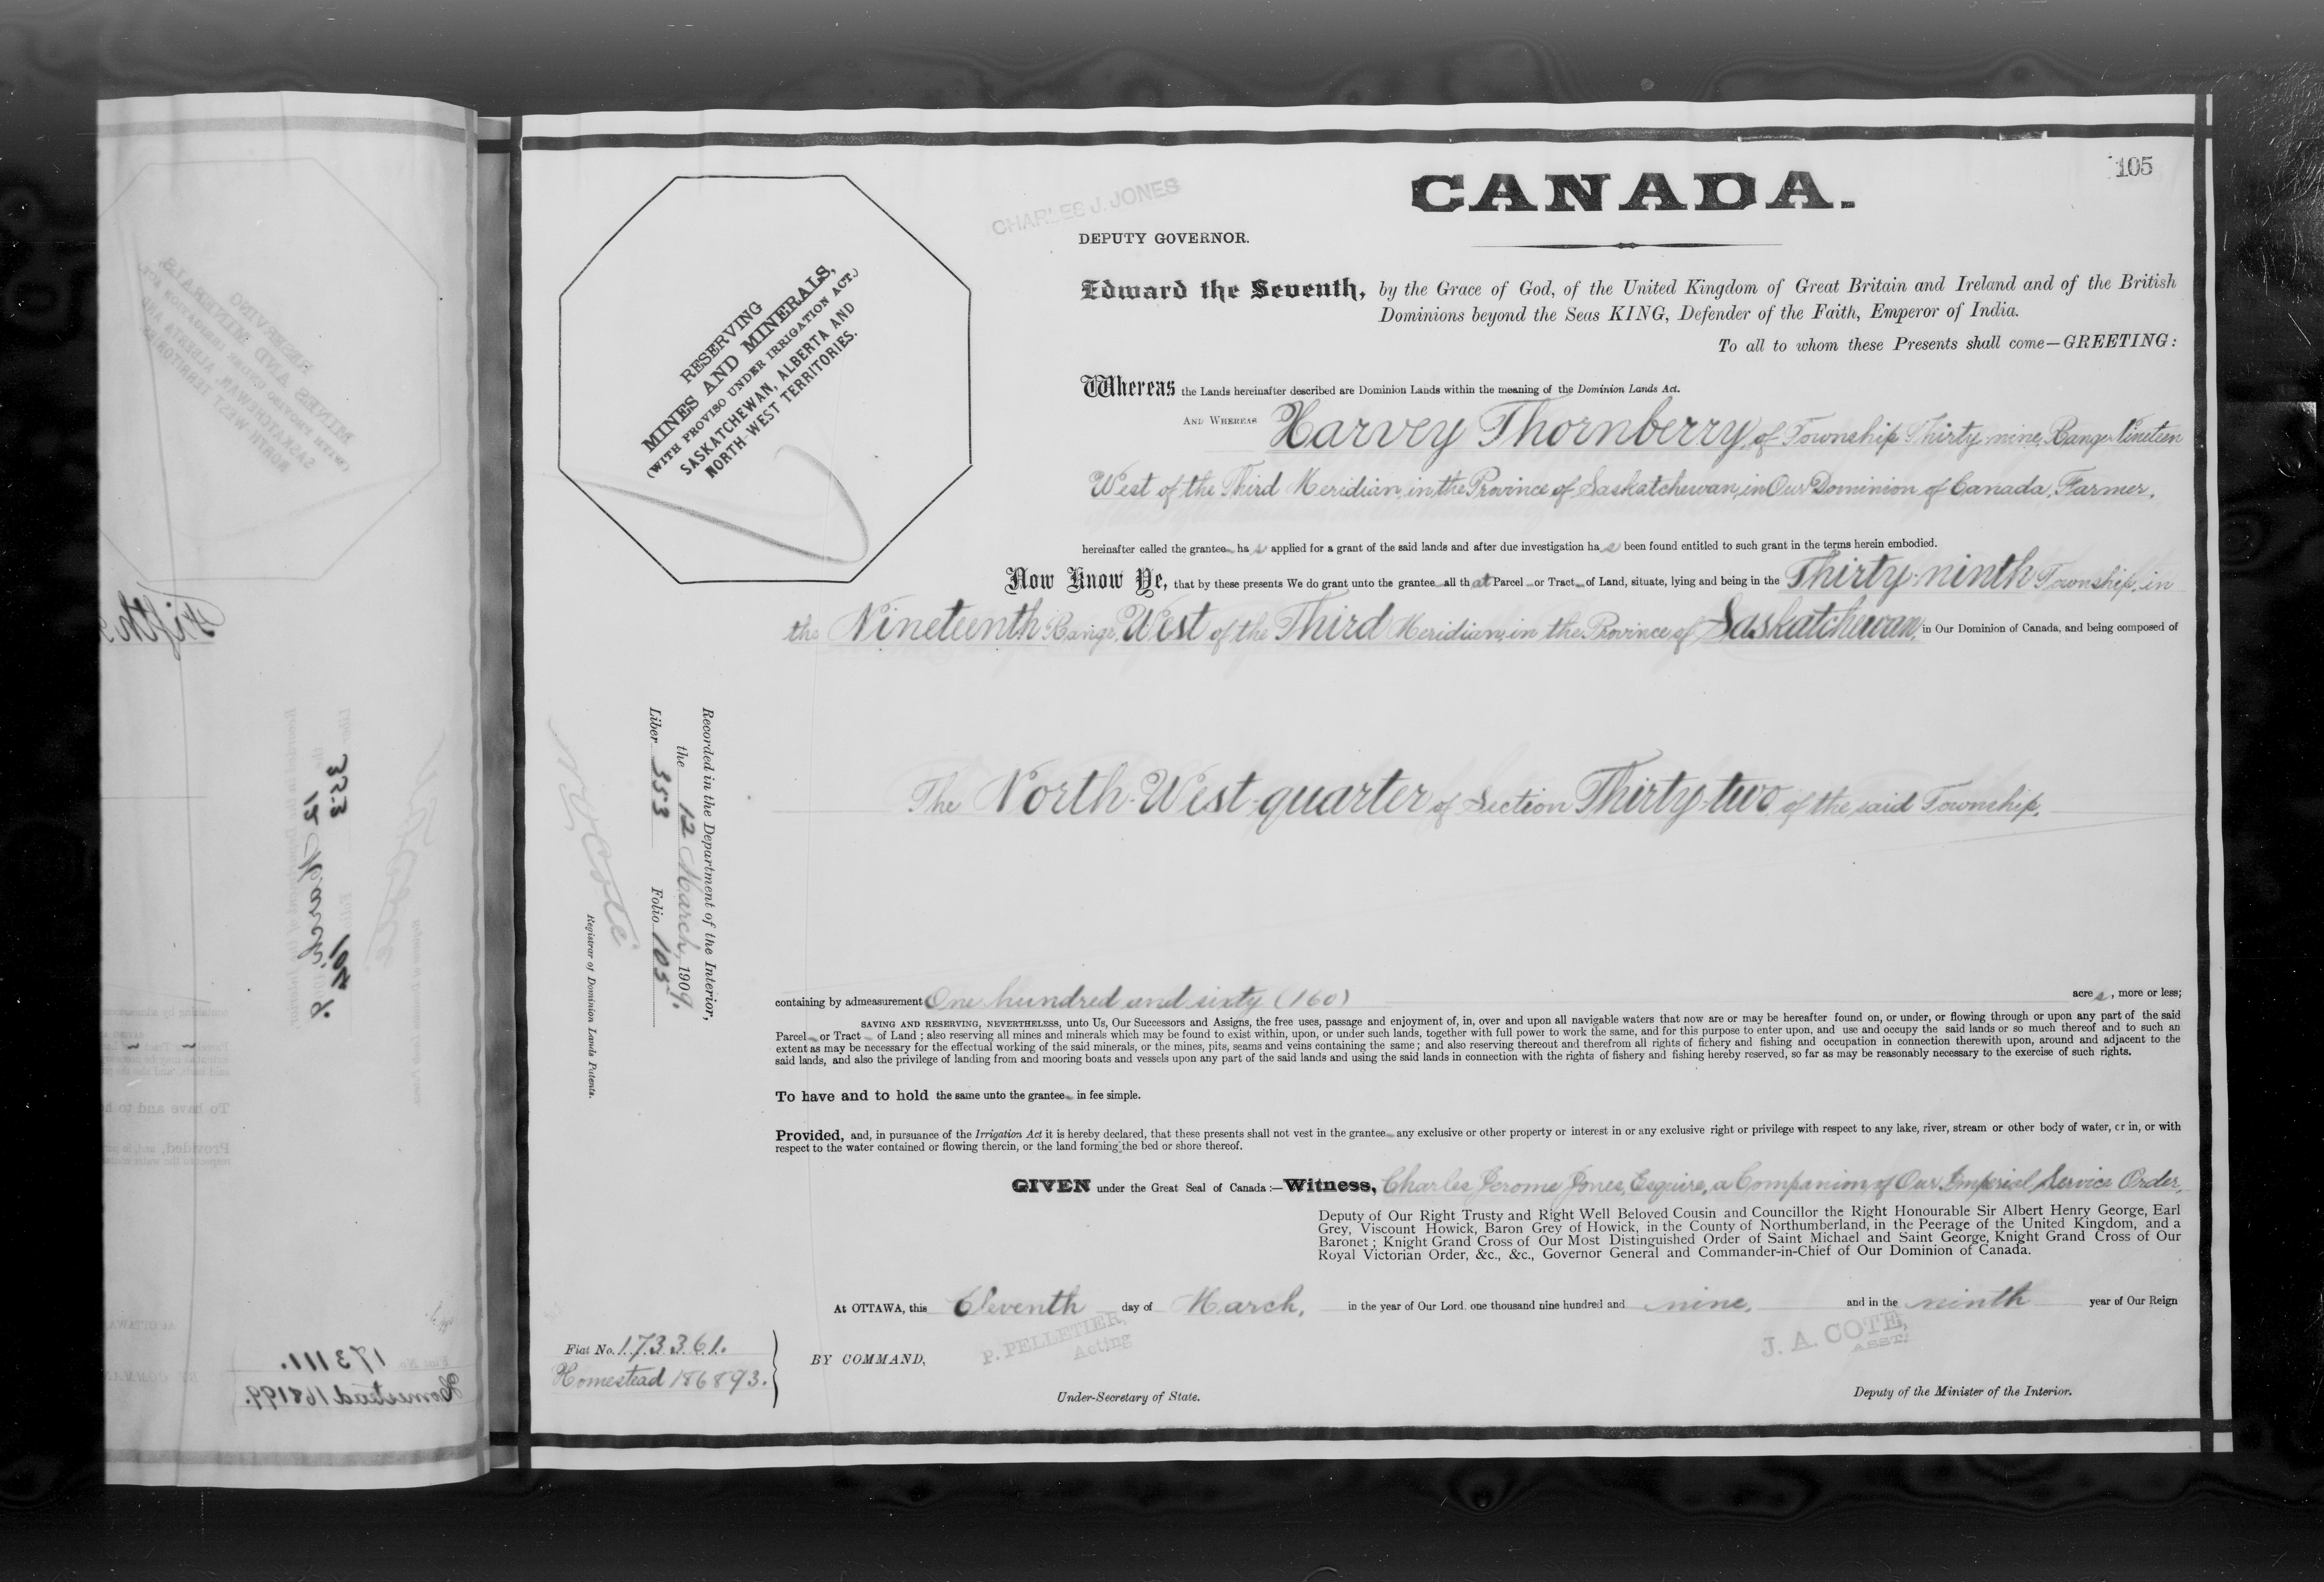 105
CANADA.
CHARLES J. JONES
DEPUTY GOVERNOR.
RESERVING
MINES AND MINERALS,
(WITH PROVISO UNDER IRRIGATION ACT.)
SASKATCHEWAN, ALBERTA AND
NORTH-WEST TERRITORIES.
Edward the Seventh, by the Grace of God, of the United Kingdom of Great Britain and Ireland and of the British
Dominions beyond the Seas KING, Defender of the Faith, Emperor of India.
To all to whom these Presents shall come—GREETING:
Whereas the Lands hereinafter described are Dominion Lands within the meaning of the Dominion Lands Act.
AND WHEREAS Harvey Thornberry, of Township Thirty nine, Range Nineteen
West of the Third Meridian, in the Province of Saskatchewan, in Our Dominion of Canada, Farmer,
hereinafter called the grantee ha s applied for a grant of the said lands and after due investigation ha s been found entitled to such grant in the terms herein embodied.
Now Know Ye, that by these presents We do grant unto the grantee all that Parcel or Tract of Land, situate, lying and being in the Thirty-ninth Township, in
the Nineteenth Range, West of the Third Meridian, in the Province of Saskatchewan, in Our Dominion of Canada, and being composed of
The North-West-quarter of Section Thirty-two of the said Township,
Recorded in the Department of the Interior,
the 12 March, 1909.
Liber 353 Folio 105
N O Coté
Registrar of Dominion Lands Patents.
containing by admeasurement One hundred and sixty (160) acre s, more or less;
SAVING AND RESERVING, NEVERTHELESS, unto Us, Our Successors and Assigns, the free uses, passage and enjoyment of, in, over and upon all navigable waters that now are or may be hereafter found on, or under, or flowing through or upon any part of the said
Parcel or Tract of Land; also reserving all mines and minerals which may be found to exist within, upon, or under such lands, together with full power to work the same, and for this purpose to enter upon, and use and occupy the said lands or so much thereof and to such an
extent as may be necessary for the effectual working of the said minerals, or the mines, pits, seams and veins containing the same; and also reserving thereout and therefrom all rights of fichery and fishing and occupation in connection therewith upon, around and adjacent to the
said lands, and also the privilege of landing from and mooring boats and vessels upon any part of the said lands and using the said lands in connection with the rights of fishery and fishing hereby reserved, so far as may be reasonably necessary to the exercise of such rights.
To have and to hold the same unto the grantee in fee simple.
Provided, and, in pursuance of the Irrigation Act it is hereby declared, that these presents shall not vest in the grantee any exclusive or other property or interest in or any exclusive right or privilege with respect to any lake, river, stream or other body of water, or in, or with
respect to the water contained or flowing therein, or the land forming the bed or shore thereof.
GIVEN under the Great Seal of Canada:—Witness, Charles Jerome Jones, Esquire, a Companion of Our Imperial Service Order,
Deputy of Our Right Trusty and Right Well Beloved Cousin and Councillor the Right Honourable Sir Albert Henry George, Earl
Grey, Viscount Howick, Baron Grey of Howick, in the County of Northumberland, in the Peerage of the United Kingdom, and a
Baronet; Knight Grand Cross of Our Most Distinguished Order of Saint Michael and Saint George, Knight Grand Cross of Our
Royal Victorian Order, &c., &c., Governor General and Commander-in-Chief of Our Dominion of Canada.
At OTTAWA, this Eleventh day of March, in the year of Our Lord one thousand nine hundred and nine, and in the ninth year of Our Reign
Fiat No. 173361.
Homestead 186893.
BY COMMAND,
P. PELLETIER,
Acting
Under-Secretary of State.
J. A. COTE,
ASST.
Deputy of the Minister of the Interior.
Fifth
353
12 March
Fiat No. 173111.
Homestead 168199.